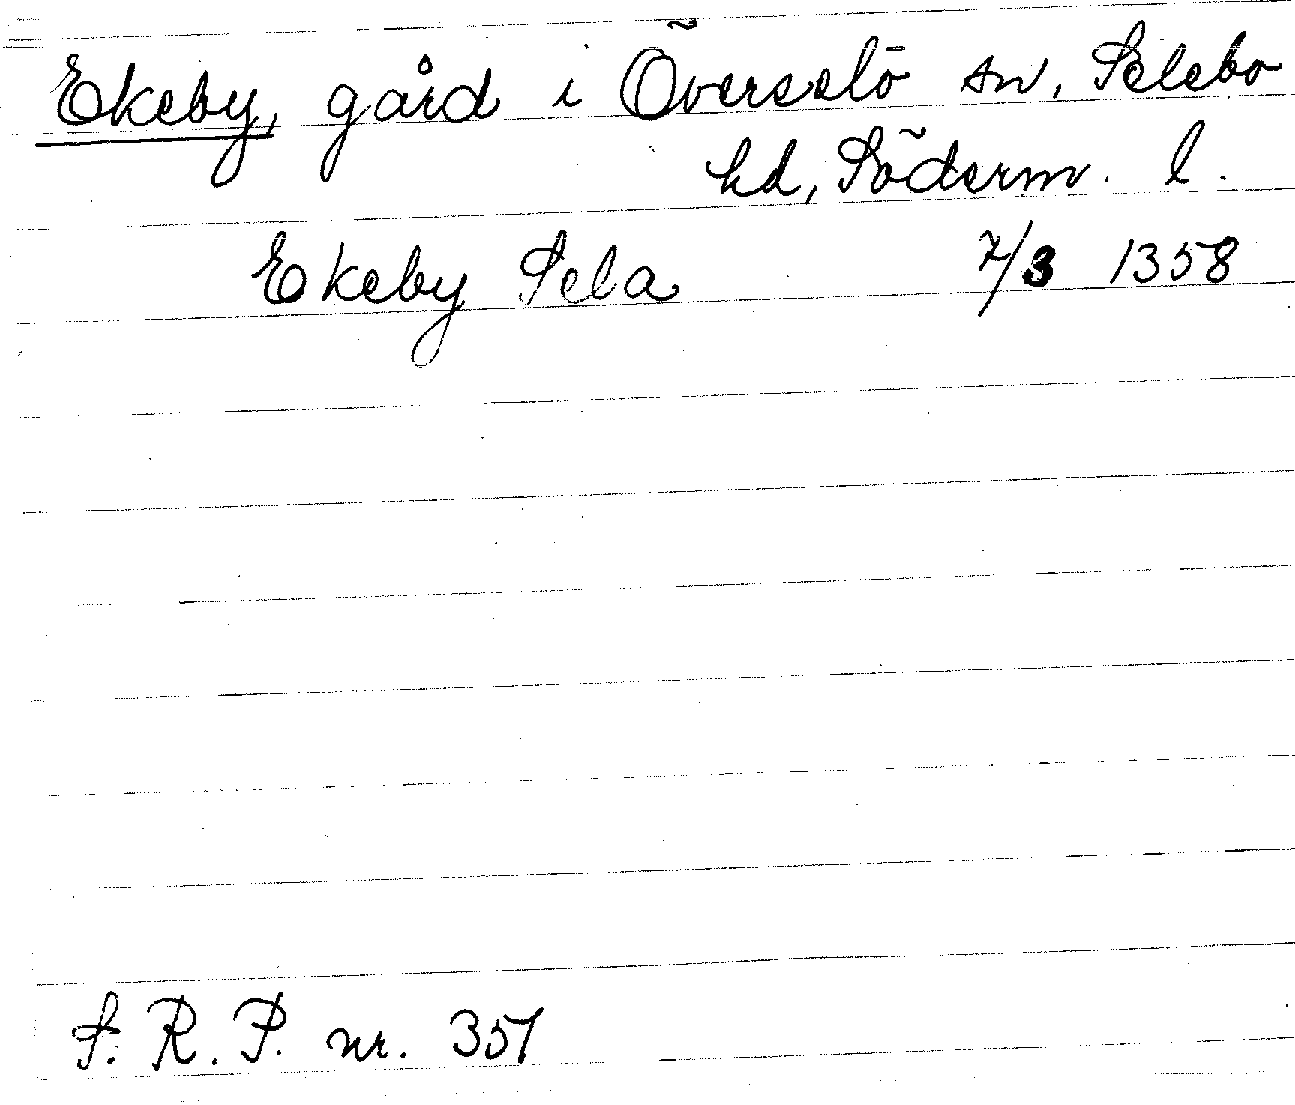 Ekeby, gård i Överselö sn, Selebo
hd, Söderm. l.
Ekeby Sela 7/3 1358
S. R. P. nr. 351